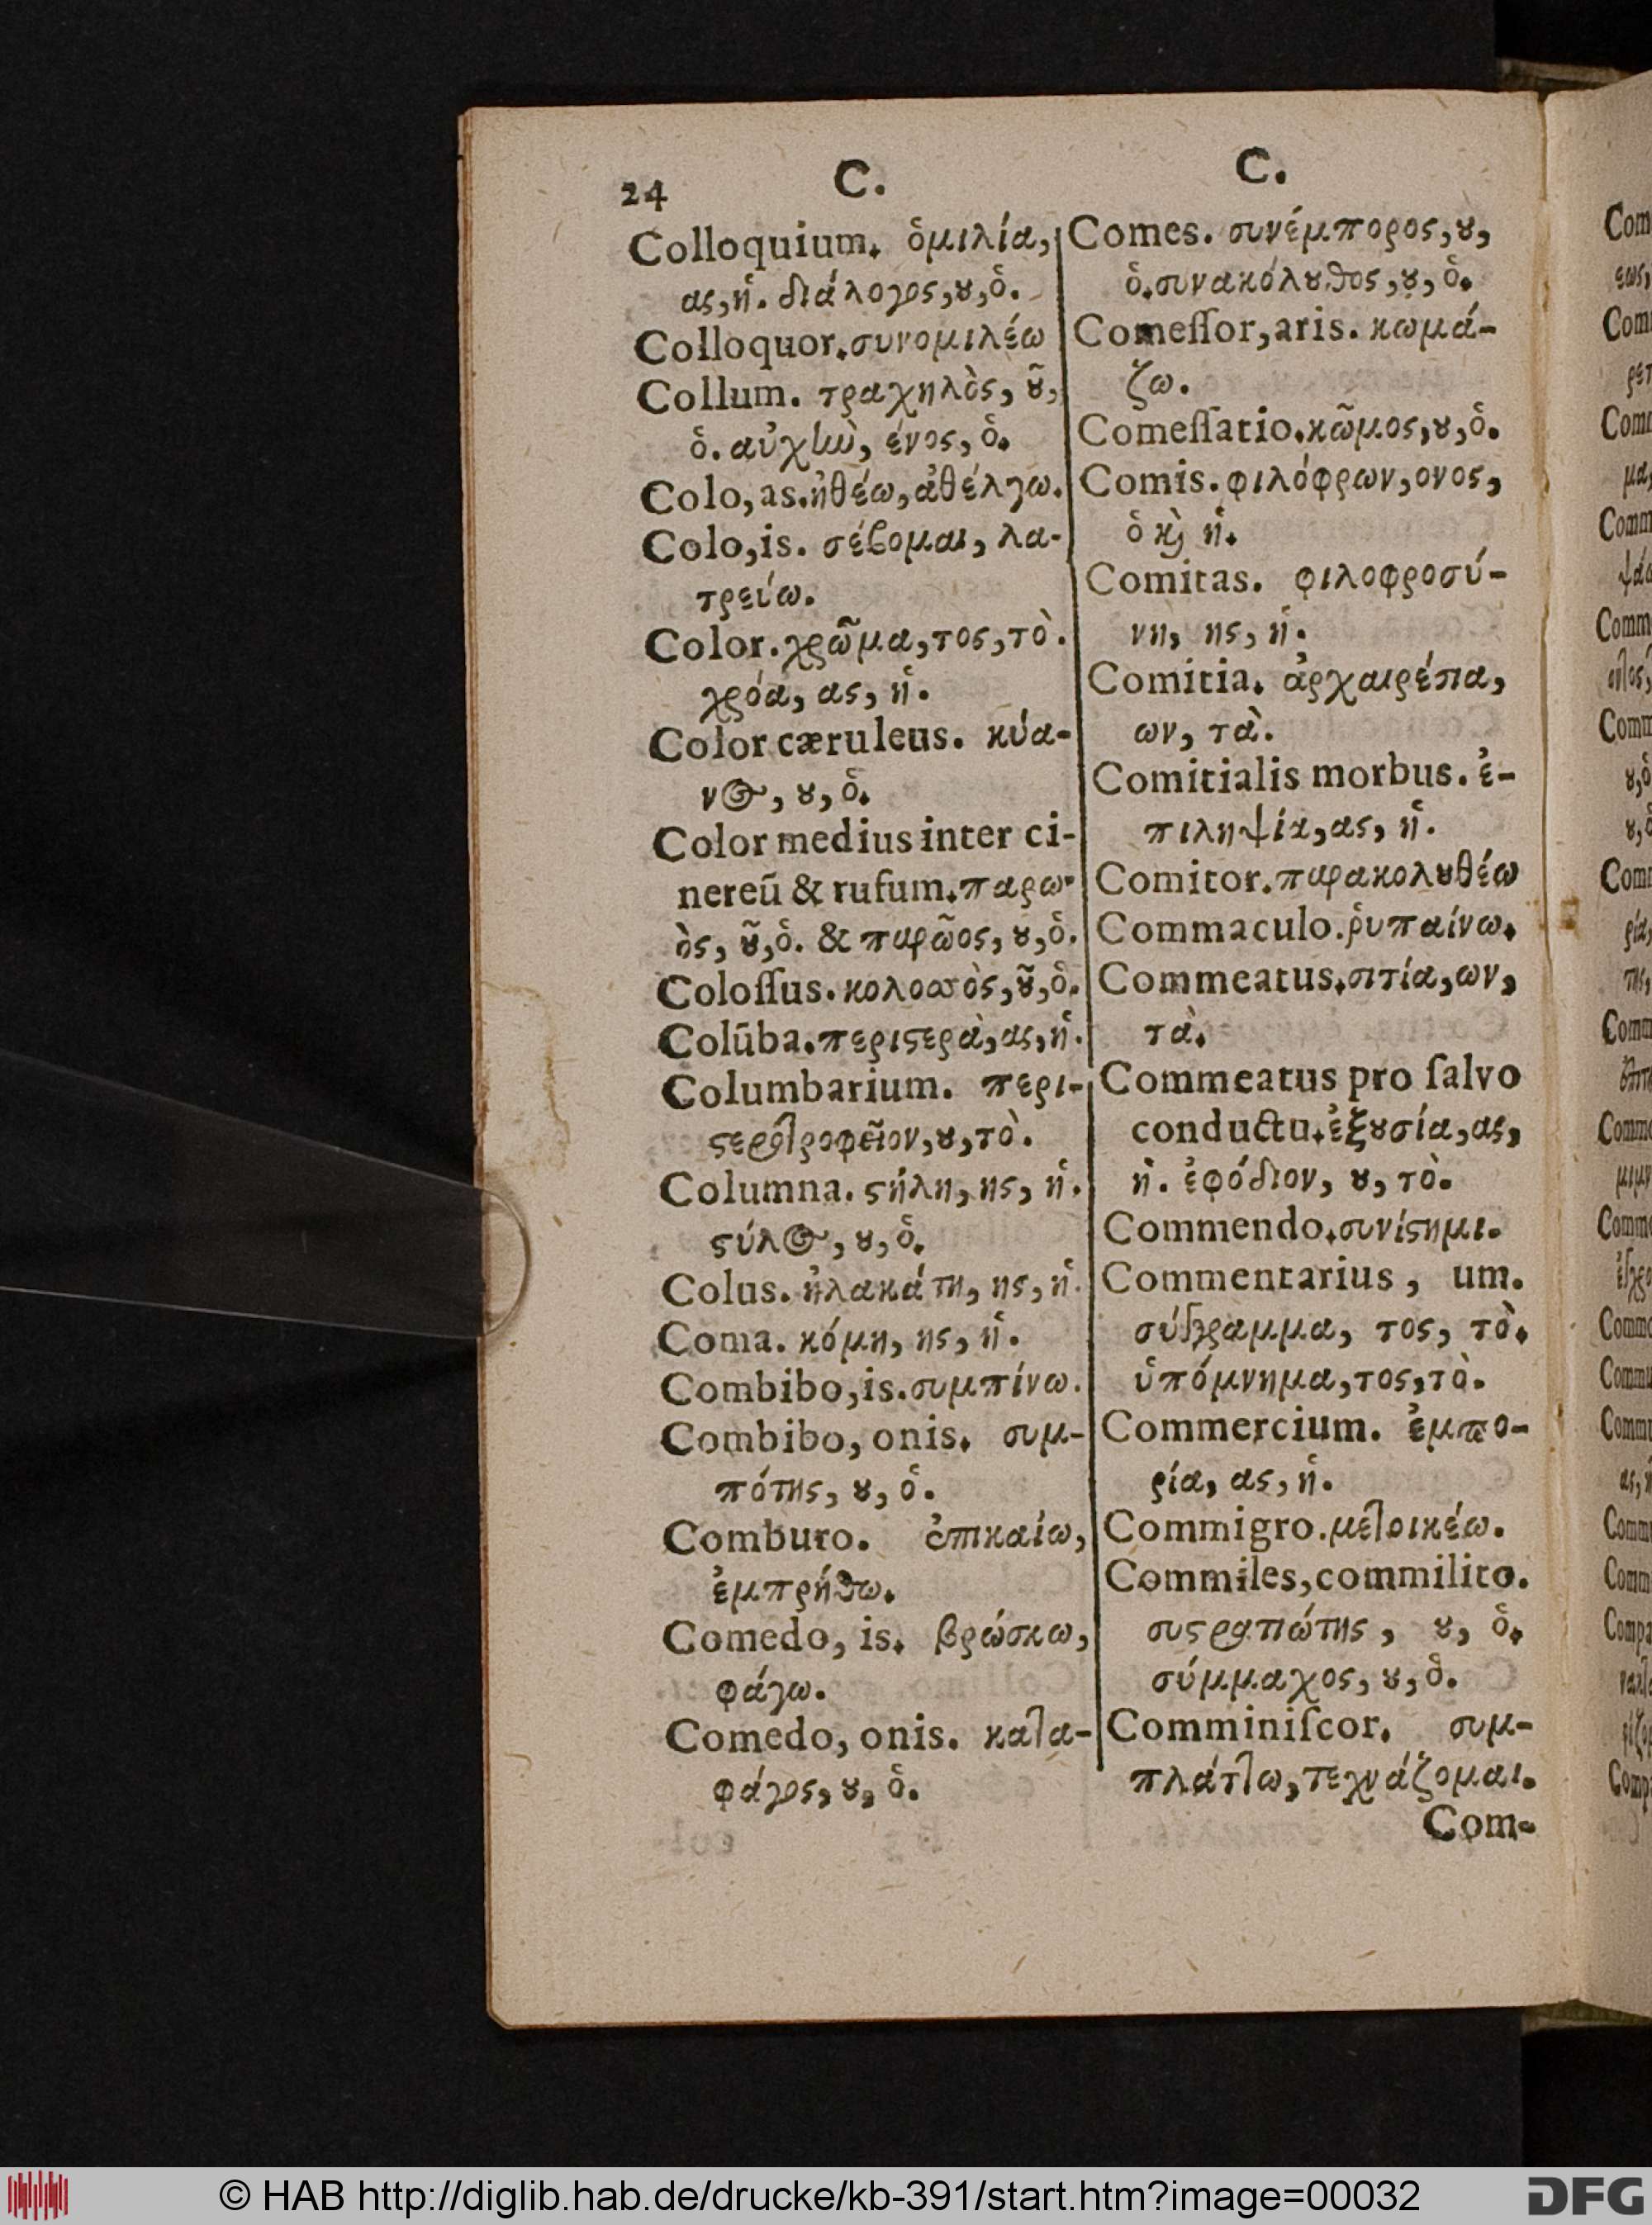 24 C. C.
Colloquium. ὁμιλία,
ας, ἡ. διάλογος, ȣ, ὁ.
Colloquor. συνομιλέω
Collum. τραχηλὸς, ȣ͂,
ὁ. αὐχὴν, ένος, ὁ.
Colo, as. ἠθέω, ἀθέλγω.
Colo, is. σέβομαι, λα-
τρεύω.
Color. χρῶμα, τος, τὸ.
χρόα, ας, ἡ.
Color cæruleus. κύα-
νος, ȣ, ὁ.
Color medius inter ci-
nereū & rufum. παρω-
ὸς, ȣ͂, ὁ. & παρῶος, ȣ, ὁ.
Coloſſus. κολοσσὸς, ȣ͂, ὁ.
Colūba. περιϛερὰ, ας, ἡ.
Columbarium. περι-
ϛεροτροφεῖον, ȣ, τὸ.
Columna. ϛήλη, ης, ἡ.
ϛύλος, ȣ, ὁ.
Colus. ἠλακάτη, ης, ἡ.
Coma. κόμη, ης, ἡ.
Combibo, is. συμπίνω.
Combibo, onis. συμ-
πότης, ȣ, ὁ.
Comburo. ἐπικαίω,
ἐμπρήθω.
Comedo, is. βρώσκω,
φάγω.
Comedo, onis. κατα-
φάγος, ȣ, ὁ.
Comes. συνέμπορος, ȣ,
ὁ. συνακόλȣθος, ȣ, ὁ.
Comeſſor, aris. κωμά-
ζω.
Comeſſatio. κῶμος, ȣ, ὁ.
Comis. φιλόφρων, ονος,
ὁ ϗ̀ ἡ.
Comitas. φιλοφροσύ-
νη, ης, ἡ.
Comitia. ἀρχαιρέσια,
ων, τὰ.
Comitialis morbus. ἐ-
πιληψία, ας, ἡ.
Comitor. παρακολȣθέω
Commaculo. ῥυπαίνω.
Commeatus. σιτία, ων,
τὰ.
Commeatus pro ſalvo
conductu. ἐξȣσία, ας,
ἡ. ἐφόδιον, ȣ, τὸ.
Commendo. συνίϛημι.
Commentarius, um.
σύγγραμμα, τος, τὸ.
ὑπόμνημα, τος, τὸ.
Commercium. ἐμπο-
ρία, ας, ἡ.
Commigro. μετοικέω.
Commiles, commilito.
συϛρατιώτης, ȣ, ὁ.
σύμμαχος, ȣ, ὁ.
Comminiſcor. συμ-
πλάττω, τεχνάζομαι.
Com-
© HAB http://diglib.hab.de/drucke/kb-391/start.htm?image=00032
DFG